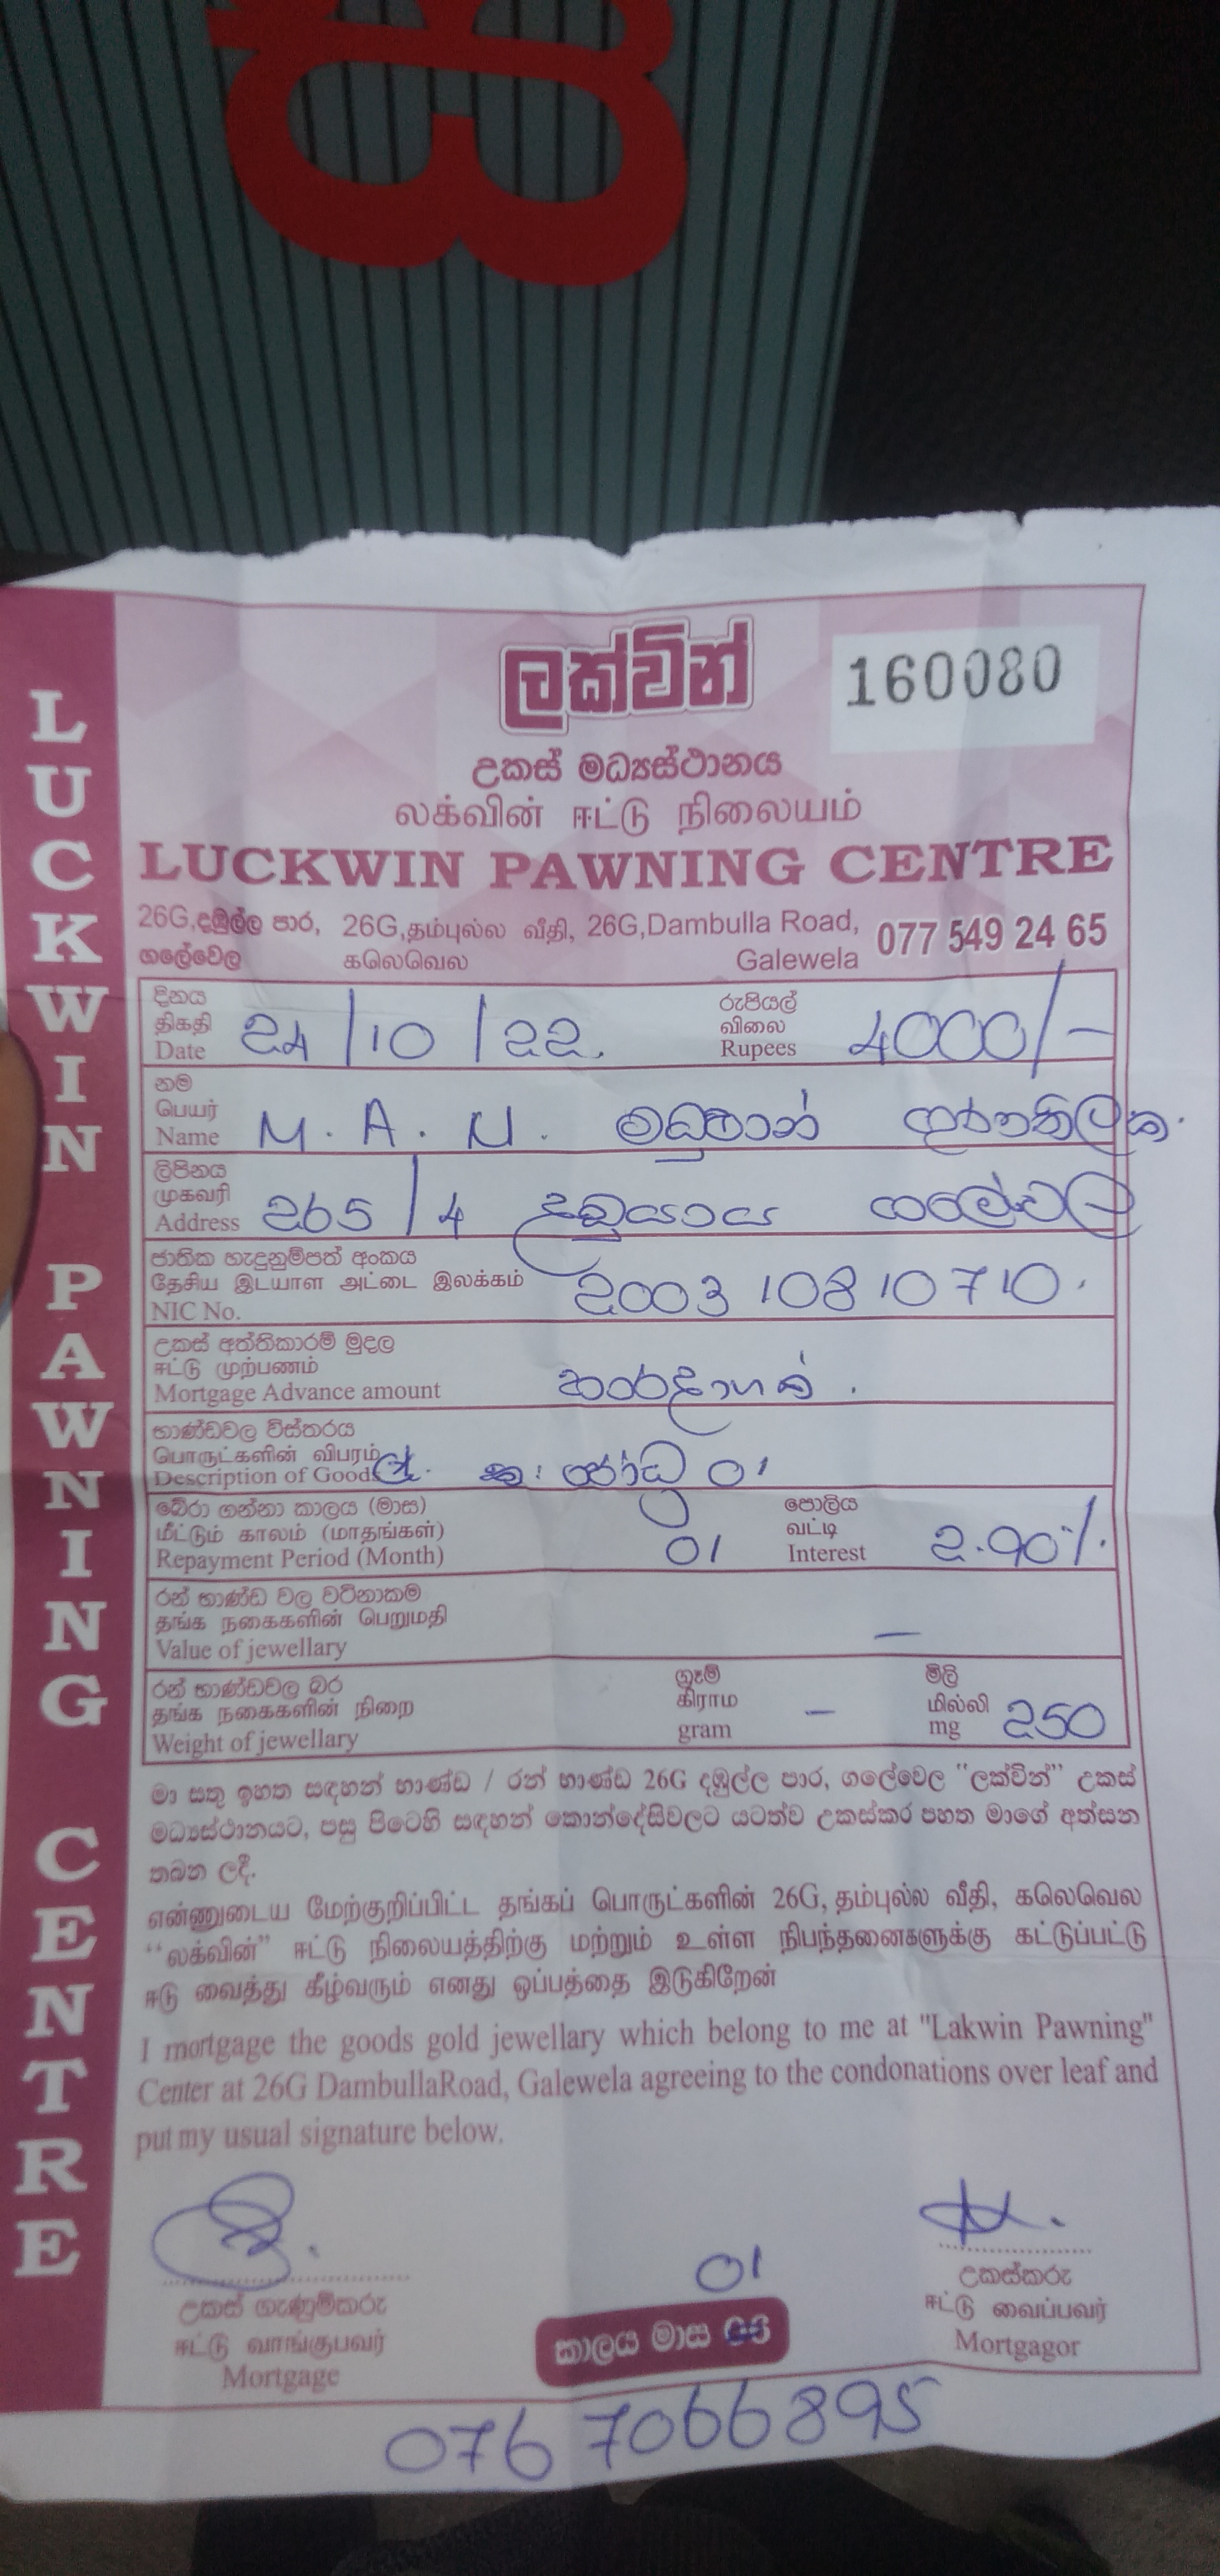 160080
ලක්වින්
උකස් මධ්‍යස්ථානය
லக்வின் ஈட்டு நிலையம்
LUCKWIN PAWNING CENTRE
26G,දඹුල්ල පාර, 26G,தம்புல்ல வீதி, 26G,Dambulla Road, 077 549 24 65
ගලේවෙල கலெவெல Galewela
දිනය
திகதி
Date 24/10/22.
රුපියල්
விலை
Rupees 4000/-
නම
பெயர்
Name M. A. N. මධුෂාන් ගුණතිලක.
ලිපිනය
முகவரி
Address 265/4 දඬුයාය ගලේවෙල
ජාතික හැදුනුම්පත් අංකය
தேசிய இடயாள அட்டை இலக்கம்
NIC No. 200310810710.
උකස් අත්තිකාරම් මුදල
ஈட்டு முற்பணம்
Mortgage Advance amount
භාණ්ඩවල විස්තරය
பொருட்களின் விபரம்
Description of Goods
බේරා ගන්නා කාලය (මාස)
மீட்டும் காலம் (மாதங்கள்)
Repayment Period (Month) 01
පොලිය
வட்டி
Interest 2.90%.
රන් භාණ්ඩ වල වටිනාකම
தங்க நகைகளின் பெறுமதி
Value of jewellary —
රන් භාණ්ඩවල බර
தங்க நகைகளின் நிறை
Weight of jewellary
ග්‍රෑම්
கிராம
gram —
මිලි
மில்லி
mg 250
මා සතු ඉහත සඳහන් භාණ්ඩ / රන් භාණ්ඩ 26G දඹුල්ල පාර, ගලේවෙල "ලක්වින්" උකස්
මධ්‍යස්ථානයට, පසු පිටෙහි සඳහන් කොන්දේසිවලට යටත්ව උකස්කර පහත මාගේ අත්සන
තබන ලදී.
என்னுடைய மேற்குறிப்பிட்ட தங்கப் பொருட்களின் 26G, தம்புல்ல வீதி, கலெவெல
"லக்வின்" ஈட்டு நிலையத்திற்கு மற்றும் உள்ள நிபந்தனைகளுக்கு கட்டுப்பட்டு
ஈடு வைத்து கீழ்வரும் எனது ஒப்பத்தை இடுகிறேன்
I mortgage the goods gold jewellary which belong to me at "Lakwin Pawning"
Center at 26G DambullaRoad, Galewela agreeing to the condonations over leaf and
put my usual signature below.
උකස් ගැණුම්කරු
ஈட்டு வாங்குபவர்
Mortgage
01
කාලය මාස 03
උකස්කරු
ஈட்டு வைப்பவர்
Mortgagor
076 7066895
LUCKWIN PAWNING CENTRE